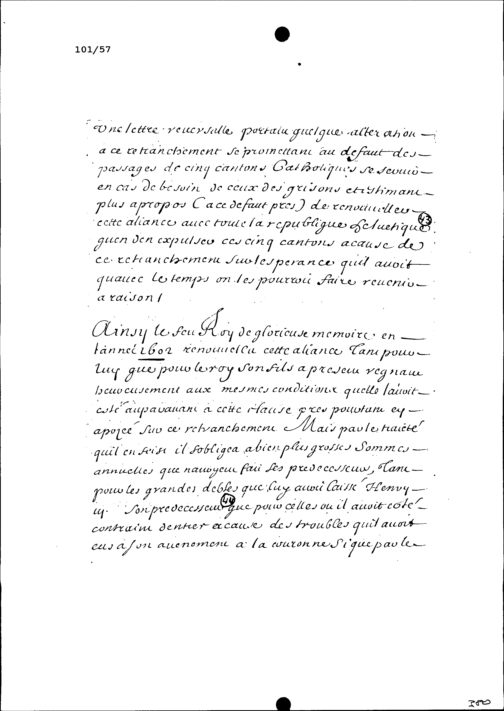 101/57
Une lettre reversalle portant quelque alteration
a ce retranchement se promettant au defaut des
passages de cinq cantons Catholiques se servir
en cas de besoin de ceux des grisons et estimant
plus apropos (a ce defaut pres) de renouveller
cette aliance avec toute la republique helvetique
43
qu'en exclure ces cinq cantons a cause de
ce retranchement sur lesperance quil avoit
quavec le temps on les pourroit faire revenir
a raison /
Ainsy le feu Roy de glorieuse memoire en
lannee 1602 renouvella cette aliance Tant pour
luy que pour le roy son fils apresent regnant
heureusement aux mesmes conditions quelle lavoit
esté auparavant a cette clause pres pourtant cy
apozée sur ce retranchement Mais par le traicté
quil en feist il sobligea a bien plus grosses Sommes
annuelles que navoyent fait ses predecesseurs, Tant
pour les grandes debtes que luy avoit laissé Henry
iij. Son predecesseur que pour celles ou il avoit esté
44
contraint dentrer a cause des troubles quil avoit
eus a son avenement a la couronne Si que par le